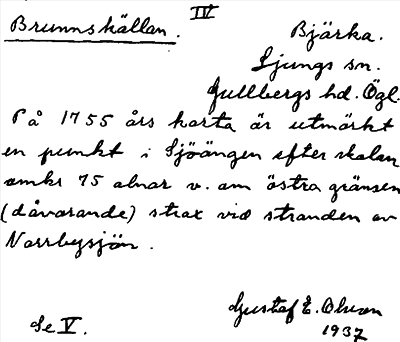 IV
Brunnskällan.
Bjärka.
Ljungs sn.
Gullbergs hd. Ögl.
På 1755 års karta är utmärkt
en punkt i Sjöängen efter skalan
omkr 75 alnar v. om östra gränsen
(dåvarande) strax vid stranden av
Norrbysjön.
Gustaf E. Olsson
1937
Se V.